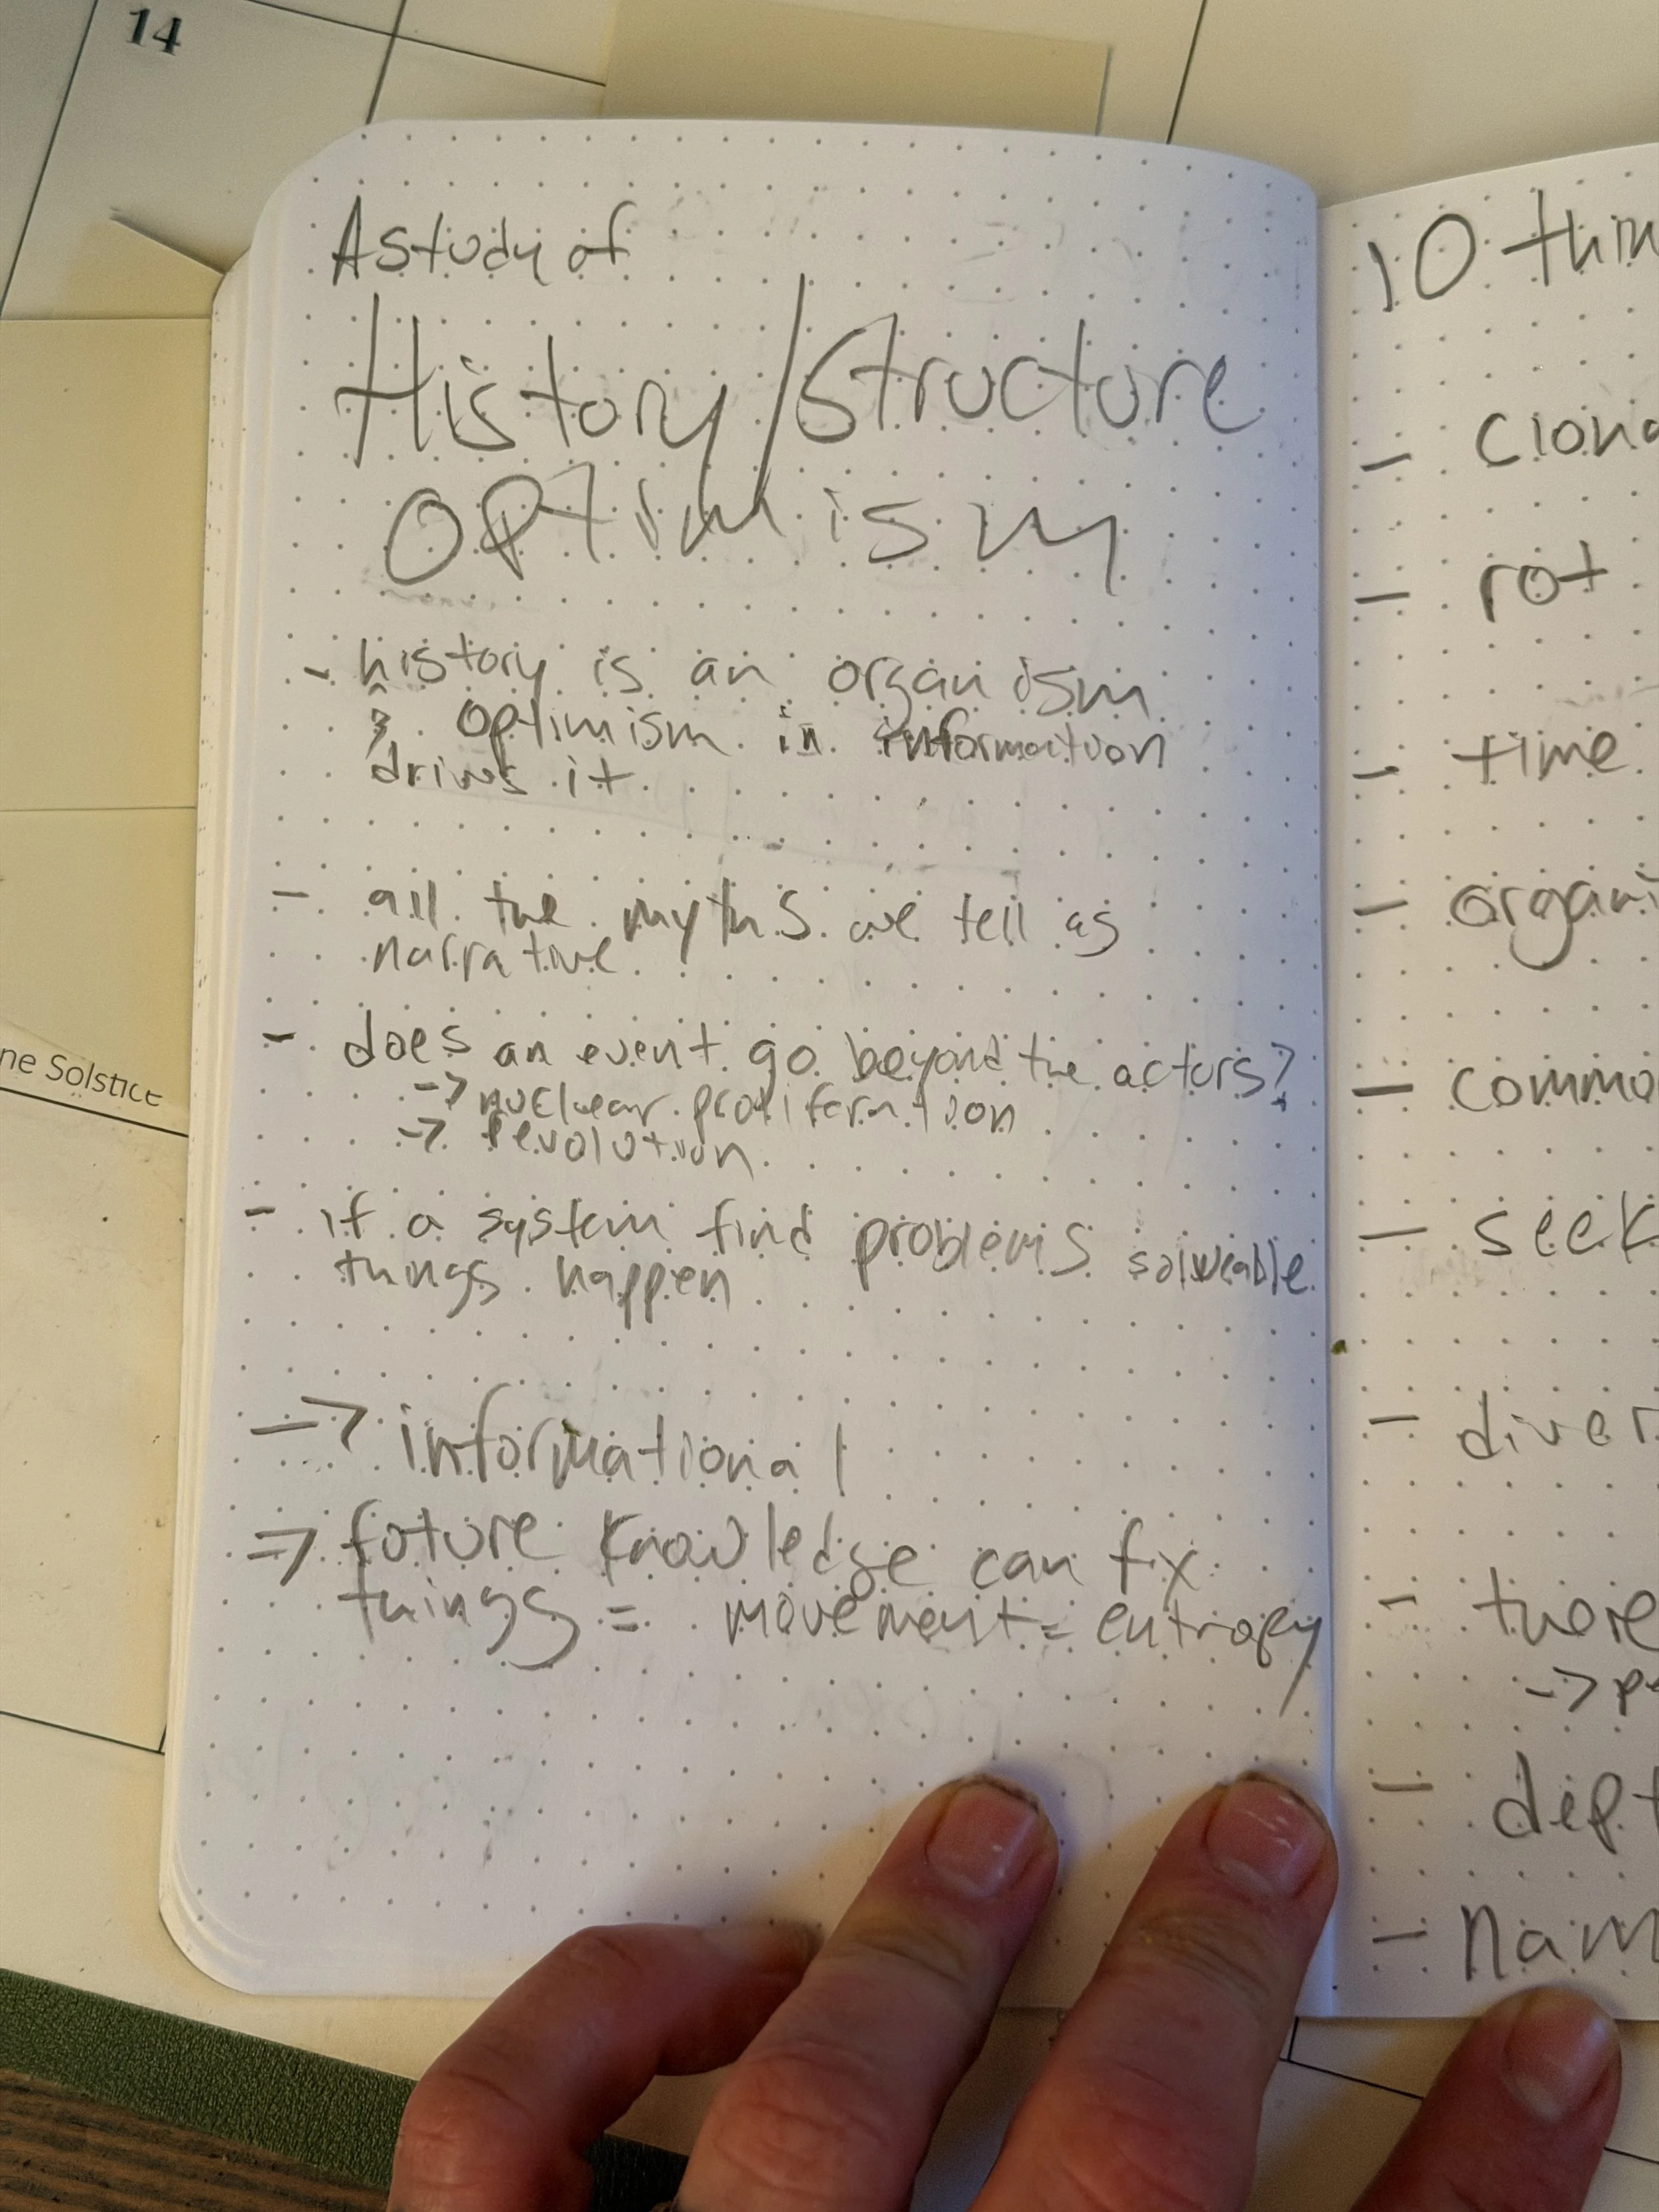 14
A study of
History/Structure
Optimism
- history is an organism
& optimism in information
drives it
- all the myths we tell as
narrative
- does an event go beyond the actors?
-> nuclear proliferation
-> revolution
- if a system find problems solveable
things happen
-> informational
=> future knowledge can fix
things = movement = entropy
ne Solstice
10 thin
- clona
- rot
- time
- organi
- commo
- seek
- diver
- there
-> pe
- dept
- nam